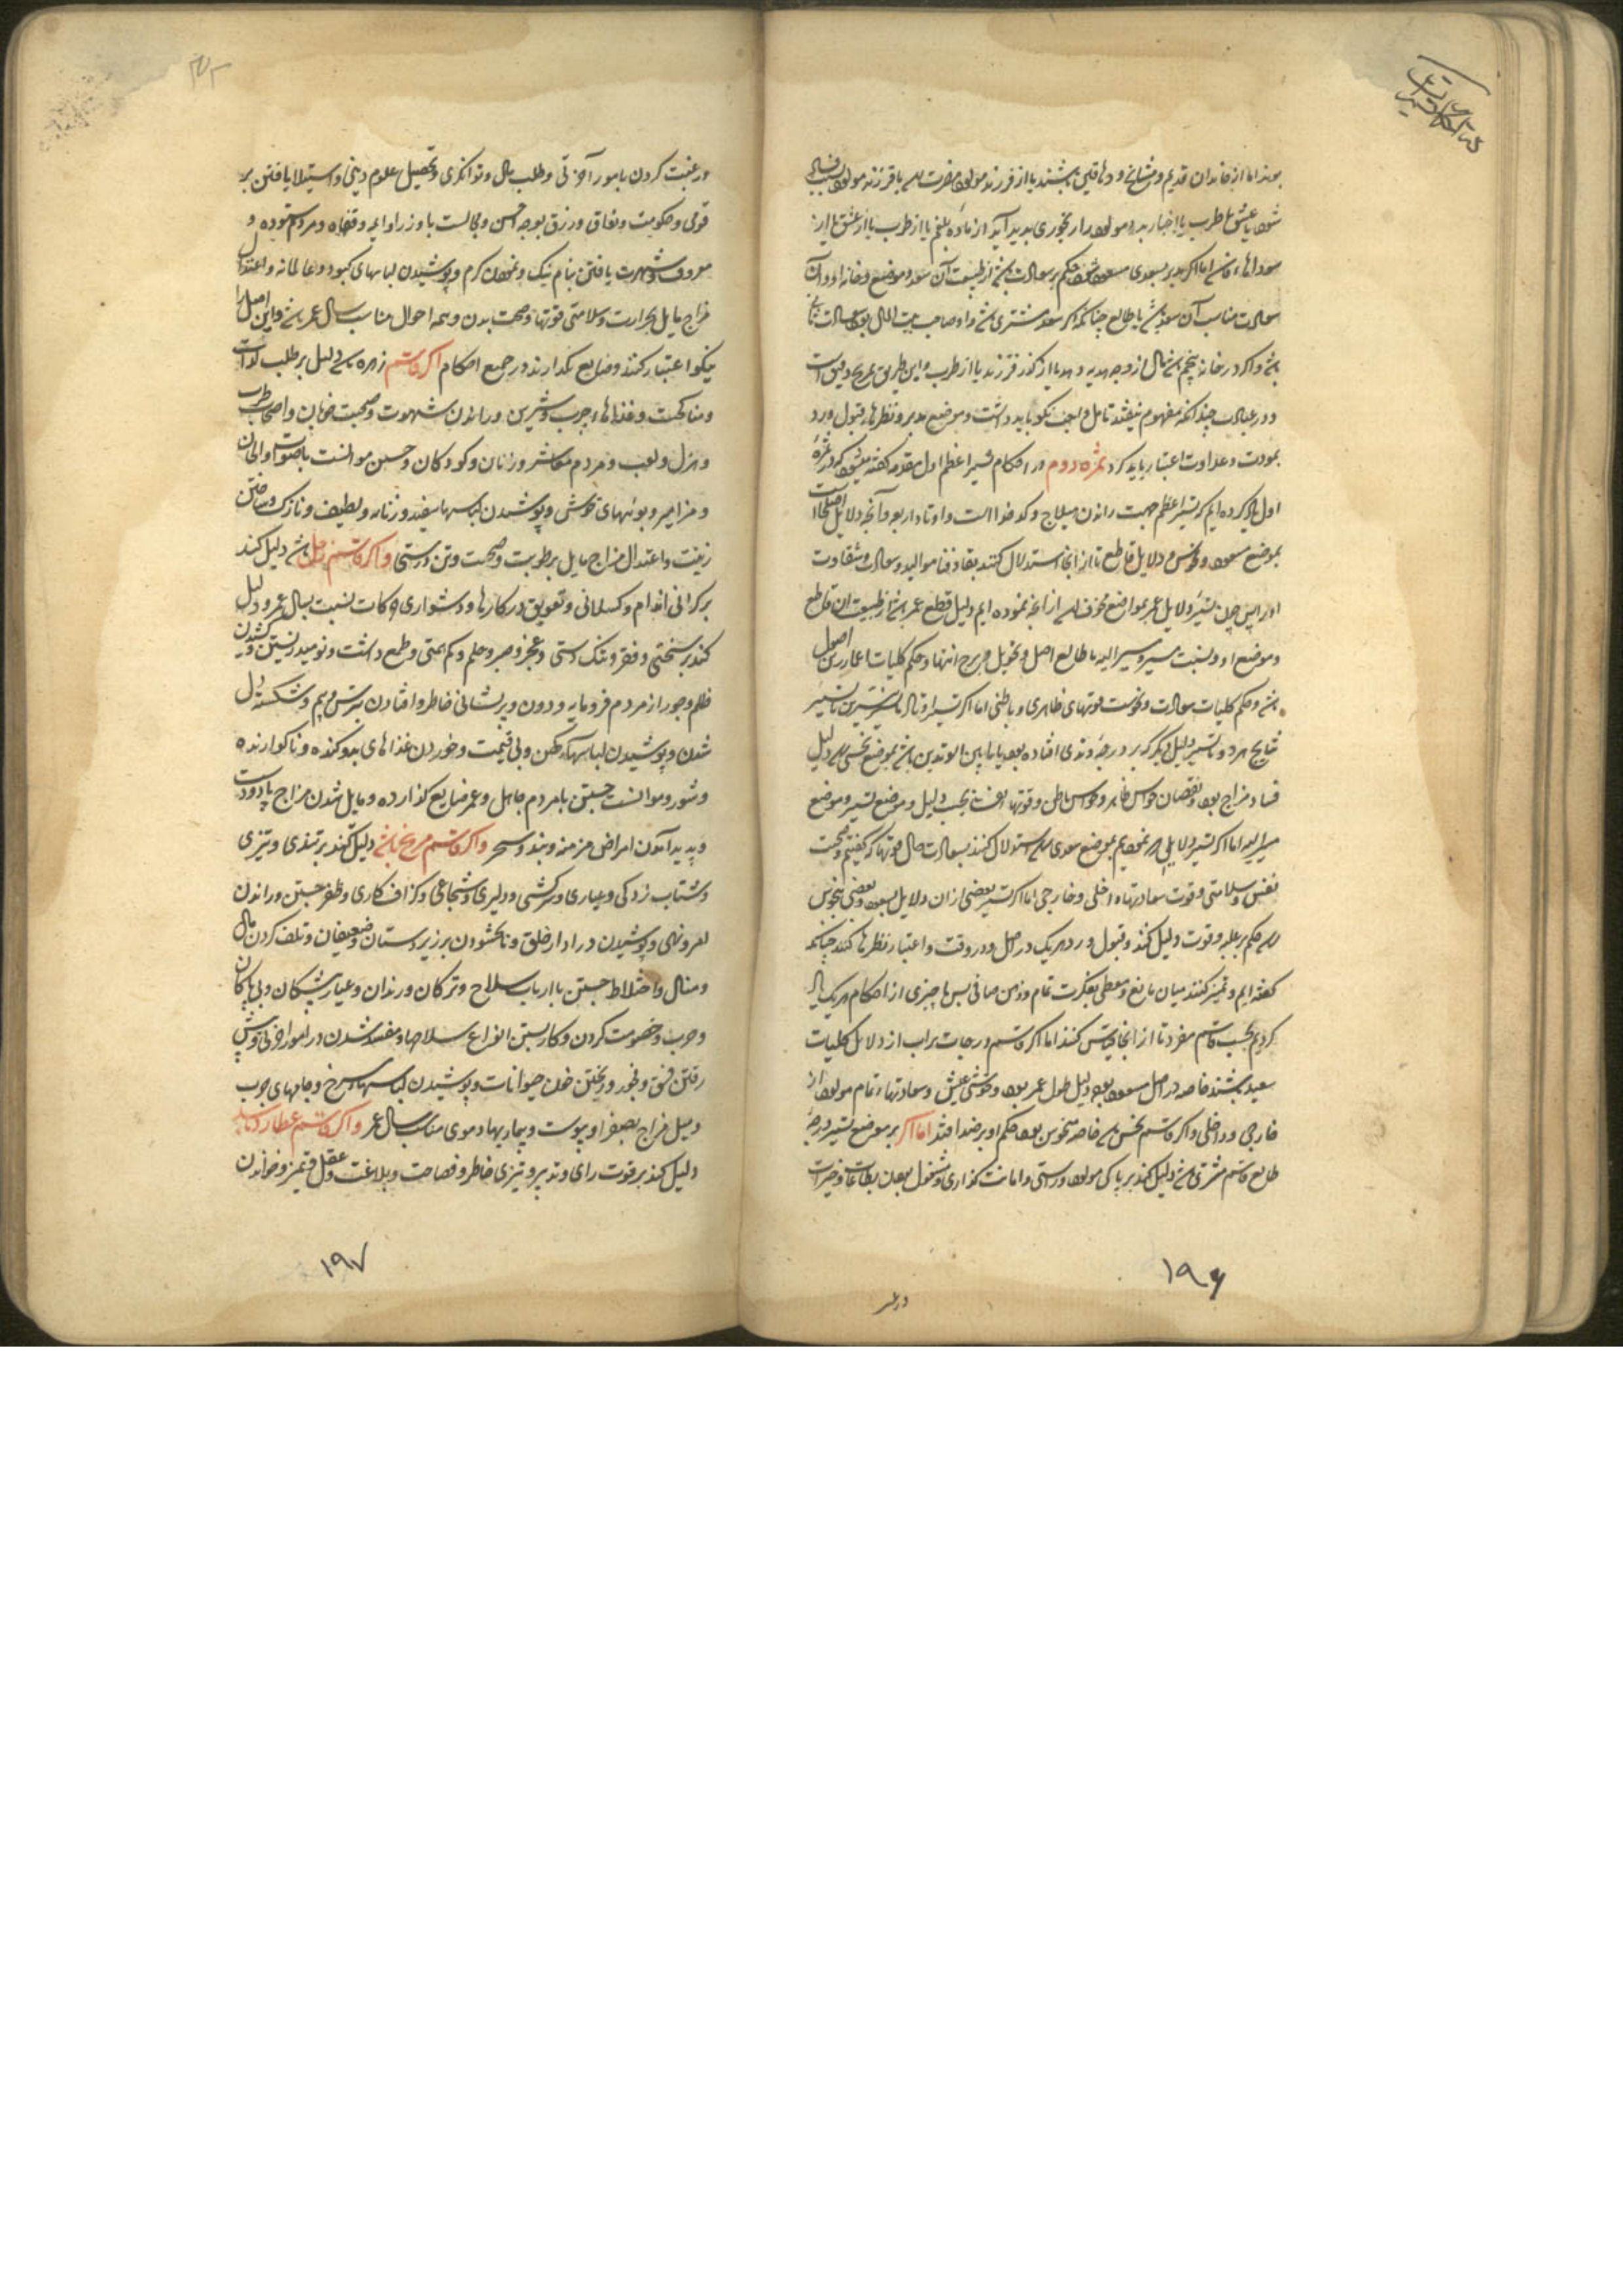 بوند اما از خاندان قدیم و مشایخ و دهاقین باشند یا از فرزند مولود مضرت رسد یا فرزند مولود بسبب فساد
شود یا عشق یا طرب یا اخبار بد و مولود را رنجوری بدید آید از ماده بلغم یا از طرب یا از عشق یا از
سوداها فاسد اما اگر مدبر بسعدی مسعود شود حکم بر سعادت باشد از طبیعت آن سعد و موضع و خانه او و آن
سعادت مناسب آن سعد باشد با طالع چنانکه اگر سعد مشتری باشد و او صاحب بیت المال بود سعادت
باشد و اگر در خانه پنجم باشد مال از وجه هدیه و هدیا از کذر فرزند یا از طرب و این طریق
و در عبارت چندانکه مفهوم نیفتد تامل واجب نیکو باید داشت و موضع مدبر و نظرها و قبول و رد
بمودت و عداوت اعتبار باید کرد ثمره دوم در احکام تسییر اعظم اول مقدمه گفته میشود که در ثمره
اول یاد کرده ایم که تسییر اعظم جهت راندن هیلاج و کدخداست و اوتاد اربعه و آنچه دلایل
بموضع سعود و نحوس و دلایل قاطع تا از آنجا استدلال کنند بقا و فنا موالید و سعادت و شقاوت
او را پس چون تسییر دلایل عمر بمواضع مخوف رسد از آنچه نموده ایم دلیل قطع عمر باشد از طبیعت آن قاطع
و موضع او و نسبت مسیر و مسیر الیه با طالع اصل و تحویل و برج انتها و حکم کلیات
باشد و حکم کلیات سعادت و نحوست قوتهای ظاهری و باطنی اما اگر تسییر اوتاد
نتایج هر دو و تسییر دلیل دیگر که بر درجه وتدی افتاده بود یا مابین الوتدین باشد بموضع نحسی رسد دلیل
فساد مزاج بود و نقصان حواس ظاهر و حواس باطن و قوتها بحسب دلیل و موضع تسییر و موضع
مسیر الیه اما اگر تسییر دلایل که نمودیم بموضع سعدی رسد استدلال کنند بسعادت حال قوتها که گفتیم و صحت
نفس و سلامتی و قوت سعادتهاء داخلی و خارجی اما اگر تسییر بعضی از آن دلایل بسعود و بعضی بنحوس
رسد حکم بر غلبه و قوت دلیل کنند و قبول و رد هر یک در اصل و در وقت و اعتبار نظرها کنند چنانکه
گفته ایم و تمیز کنند میان مانع و معطی بفکرت تمام و ذهن صافی پس ما چیزی از احکام هر یک یاد
کردیم بحسب قاسم مفرد تا از آنجا قیاس کنند اما اگر قاسم درجات براب از دلایل کلیات
سعید باشند خاصه در اصل مسعود بود دلیل طول عمر بود و خوشی عیش و سعادتهاء تمام مولود از
خارجی و داخلی و اگر قاسم نحس باشد خاصه منحوس بود حکم او بر ضد افتد اما اگر بر موضع تسییر درجه
طالع قاسم مشتری باشد دلیل کند بر پاکی مولود و راستی و امانت گذاری و مشغول بودن بطاعات و خیرات
ور
۱۹۶
و رغبت کردن بامور آخرتی و طلب مال و توانگری و تحصیل علوم دینی و استیلا یافتن بر
قومی و حکومت و نفاق و رزق بوجه احسن و مجالست با وزرا و ایمه و قضاه و مردم ستوده و
معروف و شهرت یافتن بنام نیک و نمودن کرم و پوشیدن لباسهای کبود و عالمانه و اعتدال
مزاج مایل بحرارت و سلامتی قوتها و صحت بدن و همه احوال مناسب سال عمر باشد و این اصل را
نیکو اعتبار کنند و ضایع نگذارند در جمیع احکام اگر قاسم زهره باشد دلیل بر طلب لذات
و مناکحت و غذاها چرب و شیرین و راندن شهوت و صحبت خوبان و اصحاب طرب
و هزل و لعب و مردم معاشر و زنان و کودکان و حسین موانست باصوات و الحان
و مزامیر و بوئهای خوش و پوشیدن لباسها سفید و زنانه و لطیف و نازک و ساختن
زینت و اعتدال مزاج مایل برطوبت و صحت و تن درستی و اگر قاسم زحل باشد دلیل کند
بر کرانی اندام و کسلانی و تعویق در کارها و دشواری حرکات نسبت بسال عمر و دلیل
کند بر سختی و فقر و تنک دستی و عجز و صبر و حلم و کم همتی و طمع داشت و نومید زیستن و کشیدن
ظلم و جور از مردم فرومایه و دون و پریشانی خاطر و افتادن بترس و بیم و شکسته دل
شدن و پوشیدن لباسهاء رکین و بی قیمت و خوردن غذاهای بدبو کنده و ناکوارنده
و شور و موانست جستن با مردم جاهل و عمر ضایع گذارده و مایل شدن مزاج
و بدید آمدن امراض مزمنه و بند و سحر و اگر قاسم مریخ باشد دلیل کند بر تندی و تیزی
و شتاب زدکی و عیاری و سرکشی و دلیری و شجاعی و کزاف کاری و ظفر جستن و راندن
امر و نهی و کوشیدن در ادار خلق و نابخشودن بر زیردستان و ضعیفان و تلف کردن مال
و منال و اختلاط جستن با ارباب سلاح و ترکان و رندان و عیار پیشکان و بی باکان
و حرب و خصومت کردن و کار بستن انواع سلاحها و مفسد شدن در امور اخروی و پیش
رفتن فسق و فجور و ریختن خون حیوانات و پوشیدن لباسهاء سرخ و جامهای حرب
و میل مزاج بصفرا و یبوست و بیماریهاء دموی مناسب سال عمر و اگر قاسم عطارد باشد
دلیل کند بر قوت رای و تدبیر و تیزی خاطر و فصاحت و بلاغت و عقل و تمیز و خواندن
۱۹۷